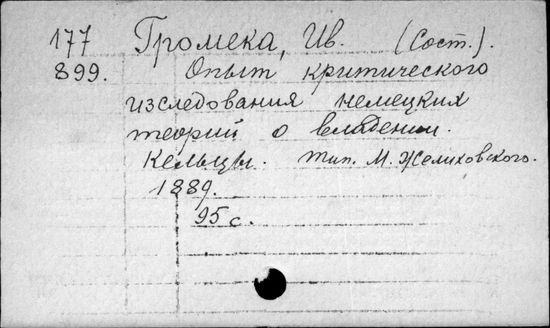 177 Громека, Ив. (Сост.).
899. Опыт критического
изследования немецких
теорий о владении.
Кельцы. тип. М. Желиховского.
1889.
95 с.